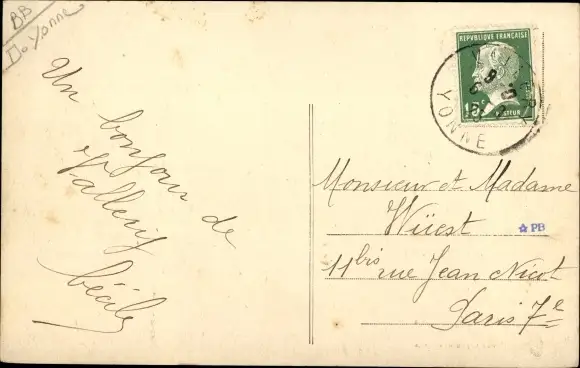 BB
D. Yonne
Un bonjour de
Vallery
Cécile
REPUBLIQUE FRANÇAISE
15c
PASTEUR
YONNE
Monsieur et Madame
Wüest
PB
11 bis rue Jean Nicot
Paris 7e